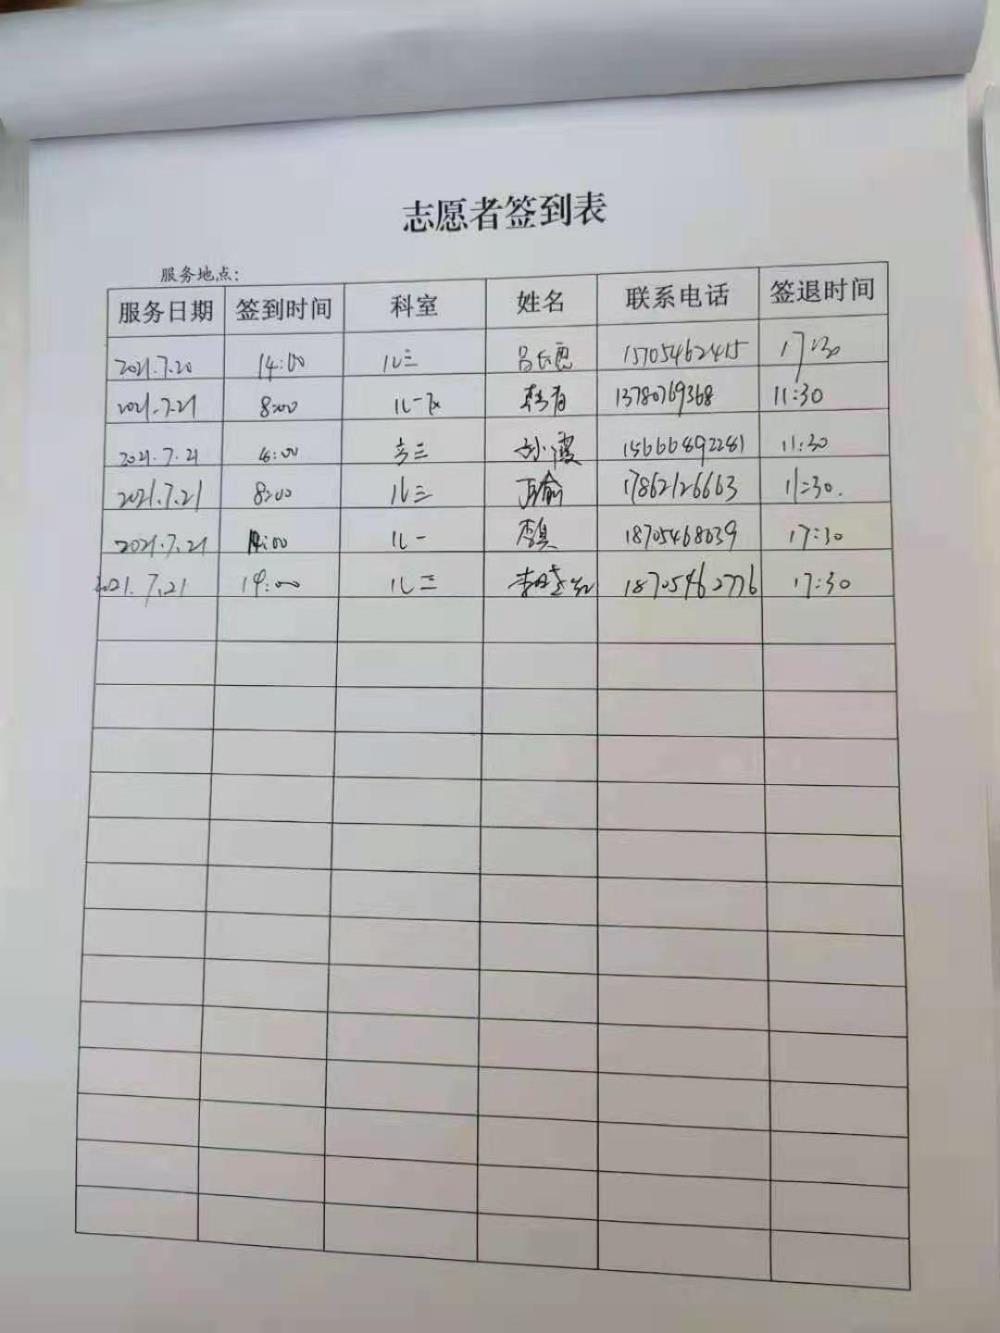 志愿者签到表
服务地点:
服务日期 签到时间 科室 姓名 联系电话 签退时间
2021.7.20 14:00 儿三 15705462415 17:30
2021.7.21 8:00 儿一 13780769368 11:30
2021.7.21 8:00 三 孙霞 15666892281 11:30
2021.7.21 8:00 儿三 17862126663 11:30.
2021.7.21 14:00 儿一 18705468039 17:30
2021.7.21 14:00 儿三 李 18705462776 17:30